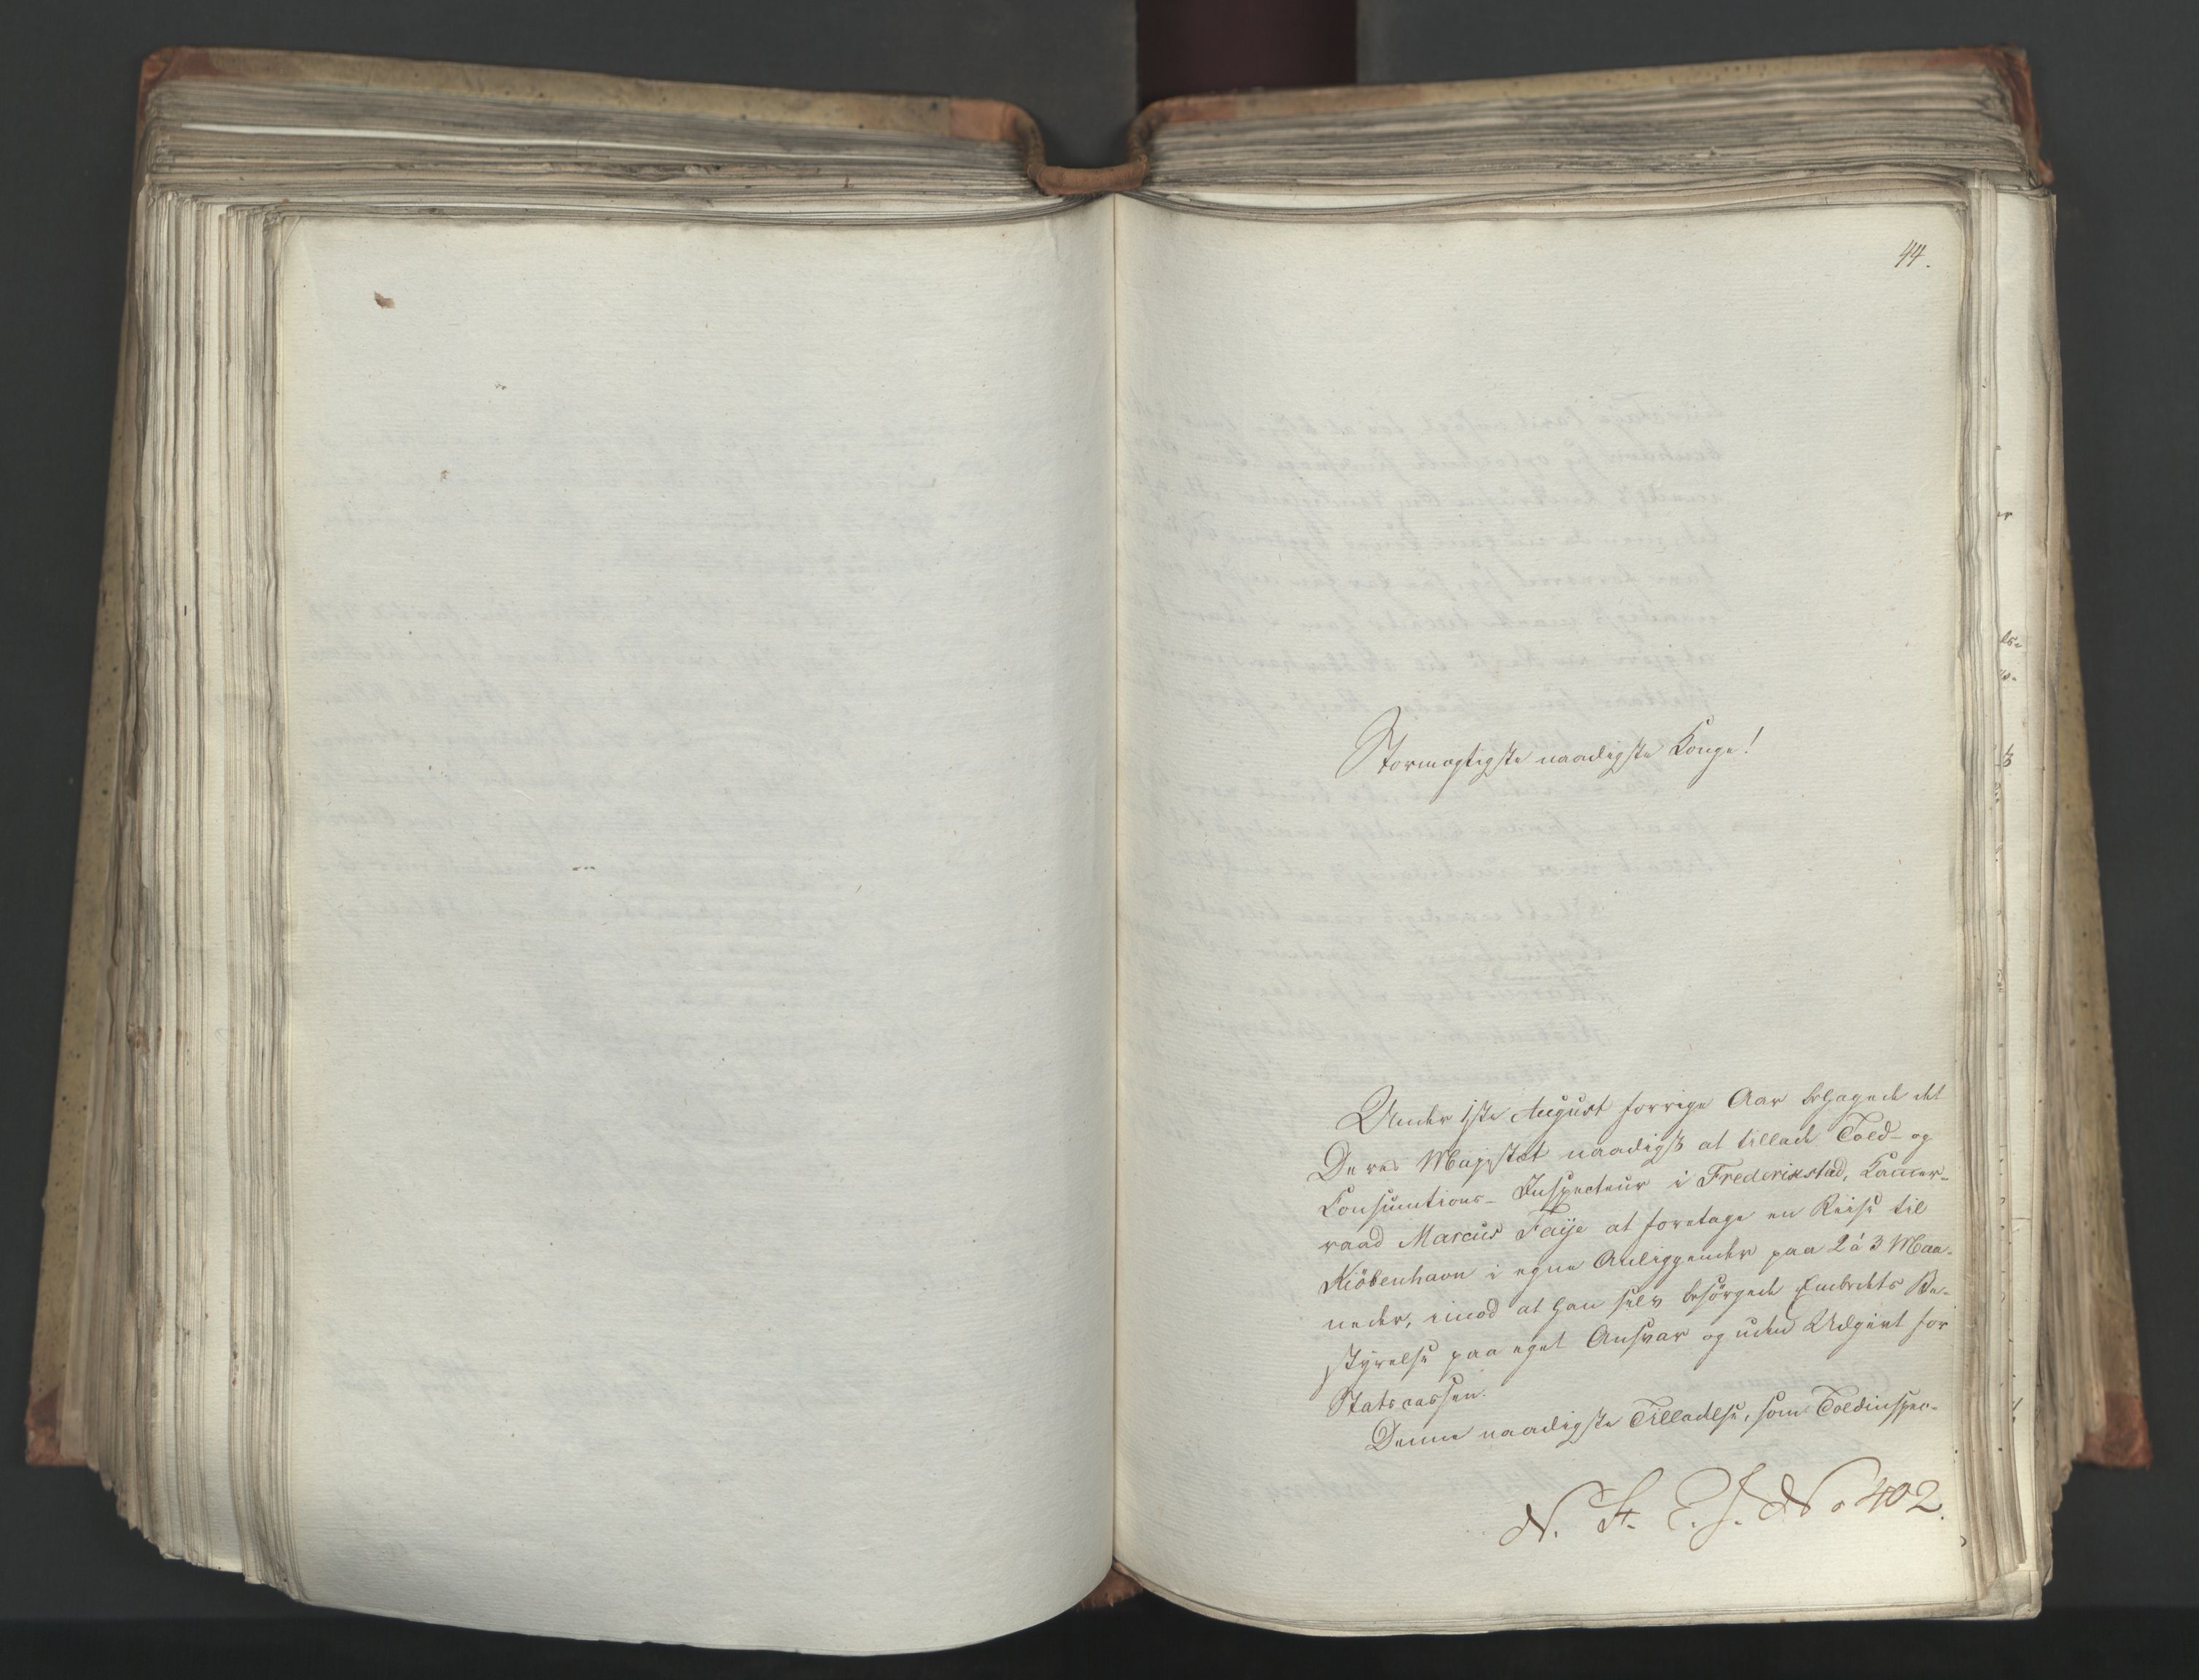 44.
Stormægtigste naadigste Konge!
Under 1ste August forrige Aar behagede det
Deres Majestæt naadigst at tillade Told- og
Consumtions-Inspecteur i Frederikstad, Kammer-
raad Marcus Faye at foretage en Reise til
Kiöbenhavn i egne Anliggender paa 2 à 3 Maa-
neder, imod at han selv besörgede Embedets Be-
styrelse paa eget Ansvar og uden Udgivt for
Statscassen.
Denne naadigste Tilladelse, som Toldinspec-
N. St. E. J. No 402.